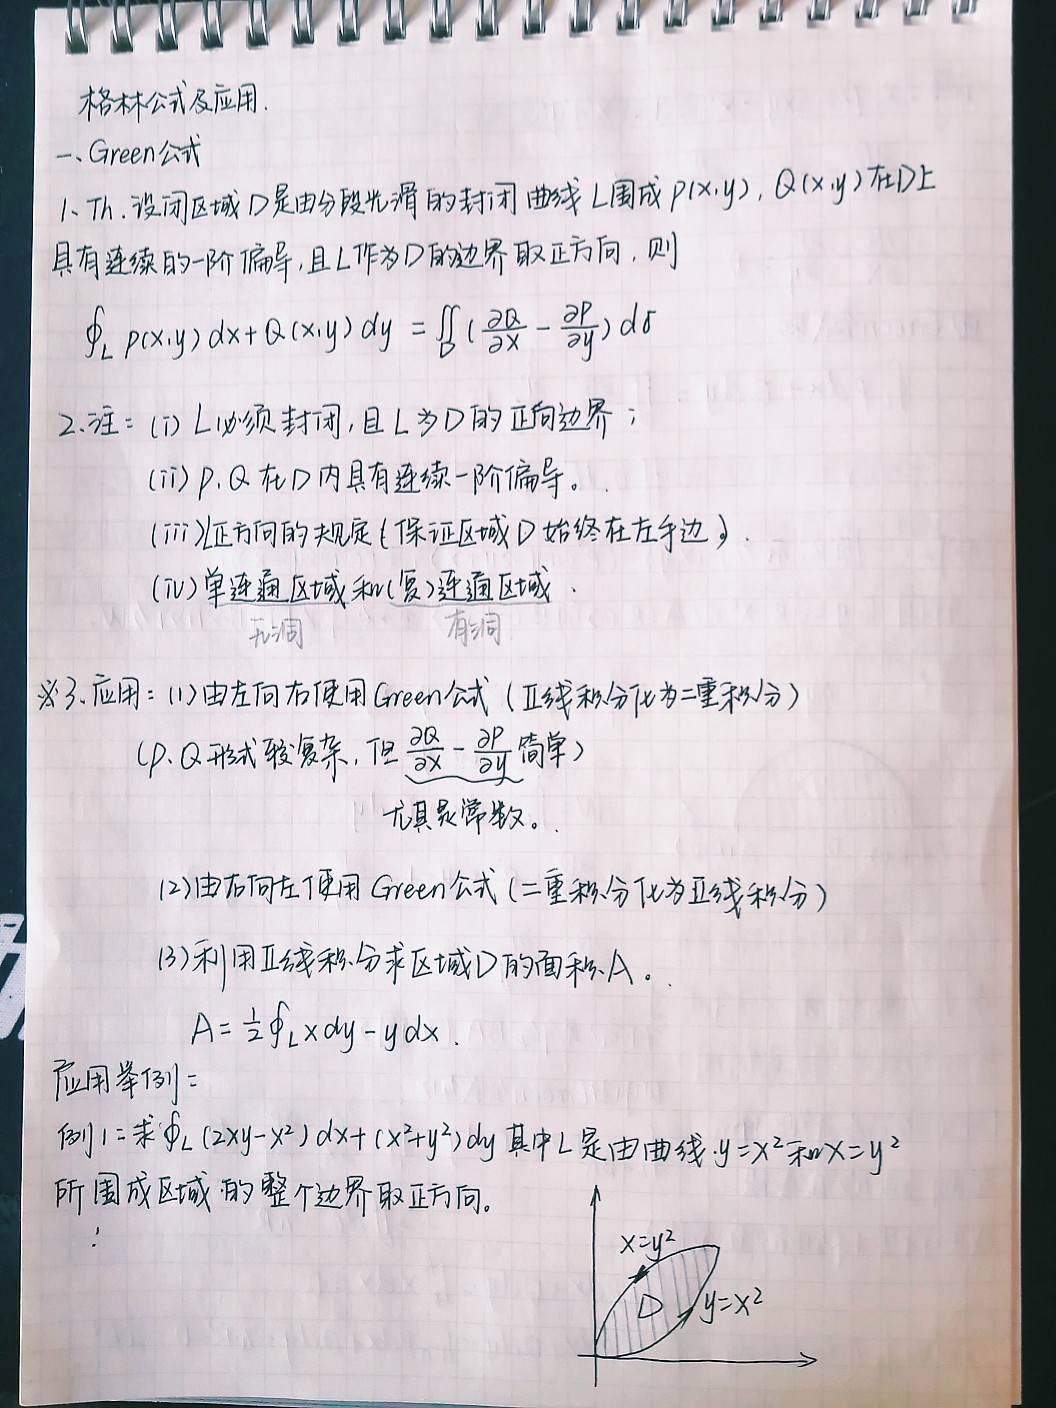 格林公式及应用.
一、Green公式
1、Th. 设闭区域D是由分段光滑的封闭曲线L围成P(x,y), Q(x,y)在D上
具有连续的一阶偏导,且L作为D的边界取正方向,则
∮_L P(x,y)dx+Q(x,y)dy = ∬_D (∂Q/∂x − ∂P/∂y)dσ
2.注: (i) L必须封闭,且L为D的正向边界;
(ii) P,Q在D内具有连续一阶偏导。
(iii) L正方向的规定{保证区域D始终在左手边}.
(iv) 单连通区域和(复)连通区域.
无洞 有洞
※3.应用: (1)由左向右使用Green公式(Ⅱ线积分化为二重积分)
(P、Q形式较复杂,但 ∂Q/∂x − ∂P/∂y 简单)
尤其是常数。
(2)由右向左使用Green公式(二重积分化为Ⅱ线积分)
(3)利用Ⅱ线积分求区域D的面积A。
A = ½∮_L xdy − ydx.
应用举例:
例1: 求∮_L (2xy−x²)dx+(x²+y²)dy 其中L是由曲线y=x²和x=y²
所围成区域的整个边界取正方向。
x=y²
D
y=x²